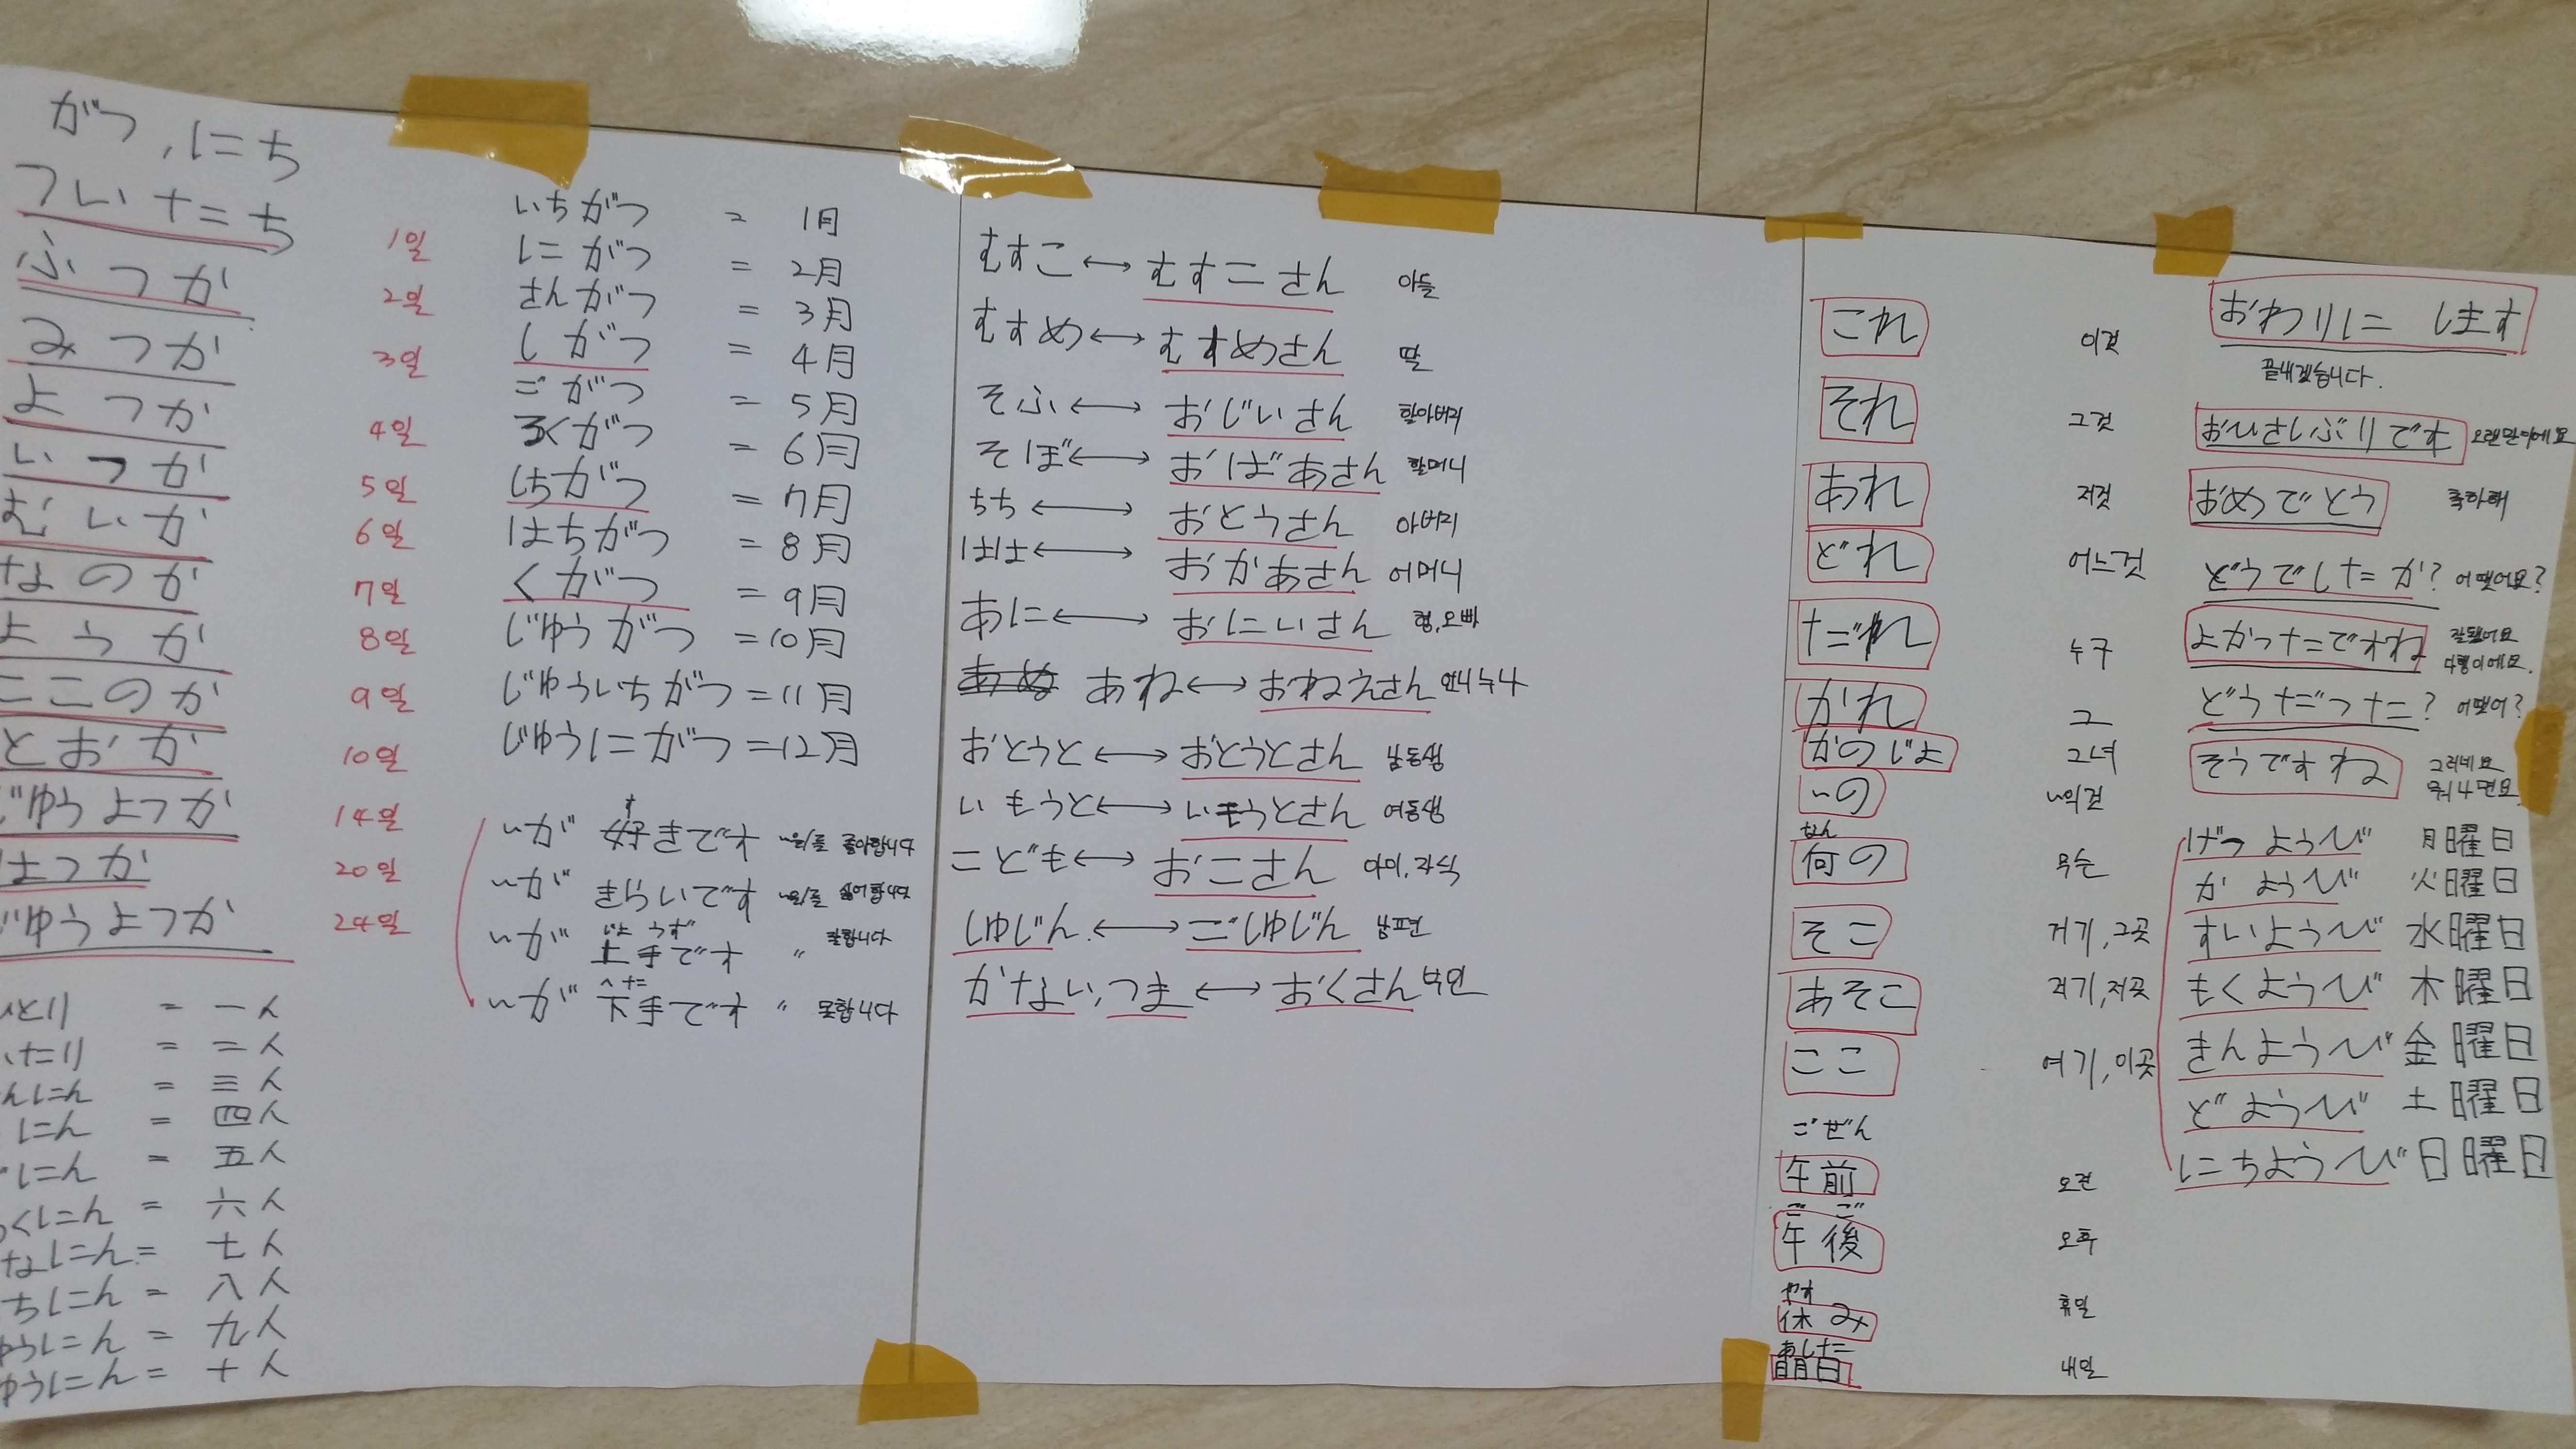 がつ, にち
ついたち 1일
ふつか 2일
みっか 3일
よっか 4일
いつか 5일
むいか 6일
なのか 7일
ようか 8일
ここのか 9일
とおか 10일
じゅうよっか 14일
はつか 20일
じゅうよっか 24일
ひとり = 一人
ふたり = 二人
んにん = 三人
にん = 四人
にん = 五人
くにん = 六人
なにん = 七人
ちにん = 八人
ゅうにん = 九人
ゅうにん = 十人
いちがつ = 1月
にがつ = 2月
さんがつ = 3月
しがつ = 4月
ごがつ = 5月
ろくがつ = 6月
しちがつ = 7月
はちがつ = 8月
くがつ = 9月
じゅうがつ = 10月
じゅういちがつ = 11月
じゅうにがつ = 12月
す
~が 好きです ~을/를 좋아합니다
~が きらいです ~을/를 싫어합니다
じょうず
~が 上手です " 잘합니다
へた
~が 下手です " 못합니다
むすこ ↔ むすこさん 아들
むすめ ↔ むすめさん 딸
そふ ↔ おじいさん 할아버지
そぼ ↔ おばあさん 할머니
ちち ↔ おとうさん 아버지
はは ↔ おかあさん 어머니
あに ↔ おにいさん 형,오빠
あね ↔ おねえさん 언니 누나
おとうと ↔ おとうとさん 남동생
いもうと ↔ いもうとさん 여동생
こども ↔ おこさん 아이,자식
しゅじん ↔ ごしゅじん 남편
かない, つま ↔ おくさん 부인
これ 이것
それ 그것
あれ 저것
どれ 어느것
だれ 누구
かれ 그
かのじょ 그녀
~の ~의것
なん
何の 무슨
そこ 거기,그곳
あそこ 저기,저곳
ここ 여기,이곳
ごぜん
午前 오전
ごご
午後 오후
やす
休み 휴일
あした
明日 내일
おわりに します
끝내겠습니다.
おひさしぶりです 오랜만이에요
おめでとう 축하해
どうでしたか? 어땠어요?
よかったですね 잘됐어요 다행이에요.
どうだった? 어땠어?
そうですね 그러네요 뭐냐면요
げつようび 月曜日
かようび 火曜日
すいようび 水曜日
もくようび 木曜日
きんようび 金曜日
どようび 土曜日
にちようび 日曜日